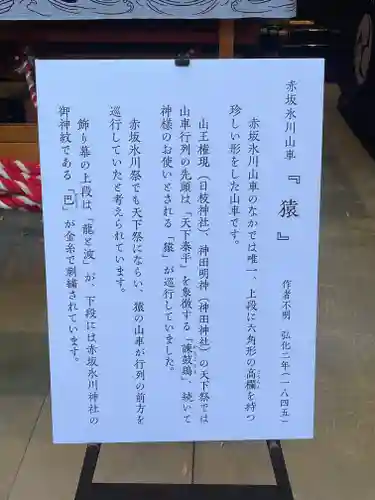 赤坂氷川山車『猿』
作者不明 弘化二年(一八四五)
赤坂氷川山車のなかでは唯一、上段に六角形の高欄を持つ
珍しい形をした山車です。
山王権現(日枝神社)、神田明神(神田神社)の天下祭では
山車行列の先頭は「天下泰平」を象徴する「諫鼓鶏」、続いて
神様のお使いとされる「猿」が巡行していました。
赤坂氷川祭でも天下祭にならい、猿の山車が行列の前方を
巡行していたと考えられています。
飾り幕の上段は「龍と波」が、下段には赤坂氷川神社の
御神紋である「巴」が金糸で刺繍されています。